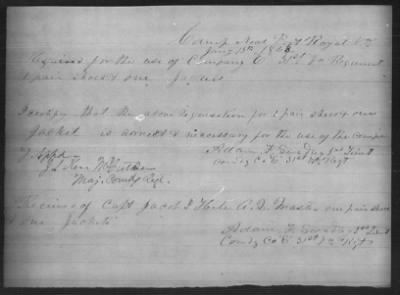 Camp Near Port Royal Va
Jany 13th 1863
Requires for the use of Company C 31st Va Regiment
1 pair shoes & one Jacket
I certify that the above requisition for 1 pair shoes & one
Jacket is correct & necessary for the use of the Company
Appd
Maj. Comdg Regt.
Adam F. 2nd Lieut
Comdg Co C 31st Va Regt
Received of Capt Jacob I Hill A. Q. Master one pair shoes
& one Jacket
Adam F. 2nd Lieut
Comdg Co C 31st Va Regt